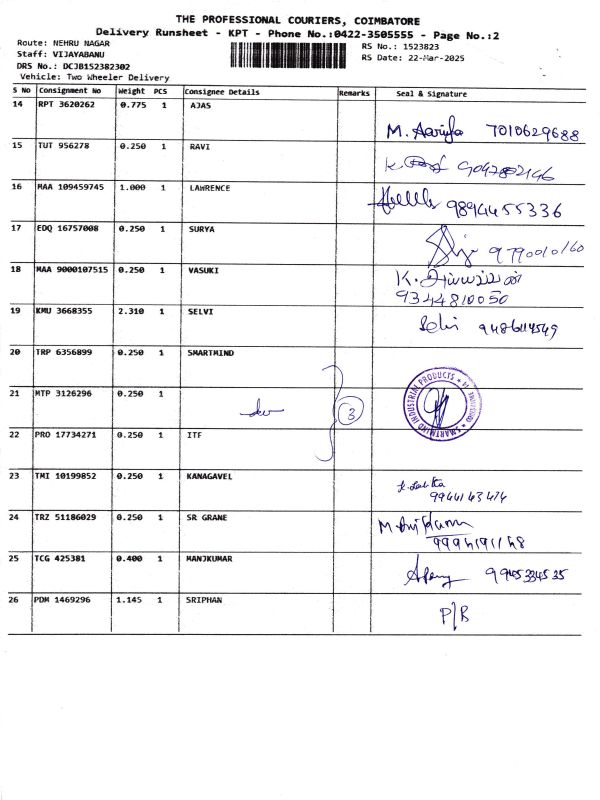 THE PROFESSIONAL COURIERS, COIMBATORE
Delivery Runsheet - KPT - Phone No.:0422-3505555 - Page No.:2
Route: NEHRU NAGAR
Staff: VIJAYABANU
DRS No.: DCJB152382302
Vehicle: Two Wheeler Delivery
RS No.: 1523823
RS Date: 22-Mar-2025
S No Consignment No Weight PCS Consignee Details Remarks Seal & Signature
14 RPT 3620262 0.775 1 AJAS
M. 7010629688
15 TUT 956278 0.250 1 RAVI
16 MAA 109459745 1.000 1 LAWRENCE
9894455336
17 EDQ 16757008 0.250 1 SURYA
9790010160
18 MAA 9000107515 0.250 1 VASUKI
K.
9344810050
19 KMU 3668355 2.310 1 SELVI
Selvi
20 TRP 6356899 0.250 1 SMARTMIND
21 MTP 3126296 0.250 1
3
SMARTMIND INDUSTRIAL PRODUCTS
22 PRO 17734271 0.250 1 ITF
23 TMI 10199852 0.250 1 KANAGAVEL
24 TRZ 51186029 0.250 1 SR GRANE
25 TCG 425381 0.400 1 MANJKUMAR
26 PDM 1469296 1.145 1 SRIPHAN
P/B